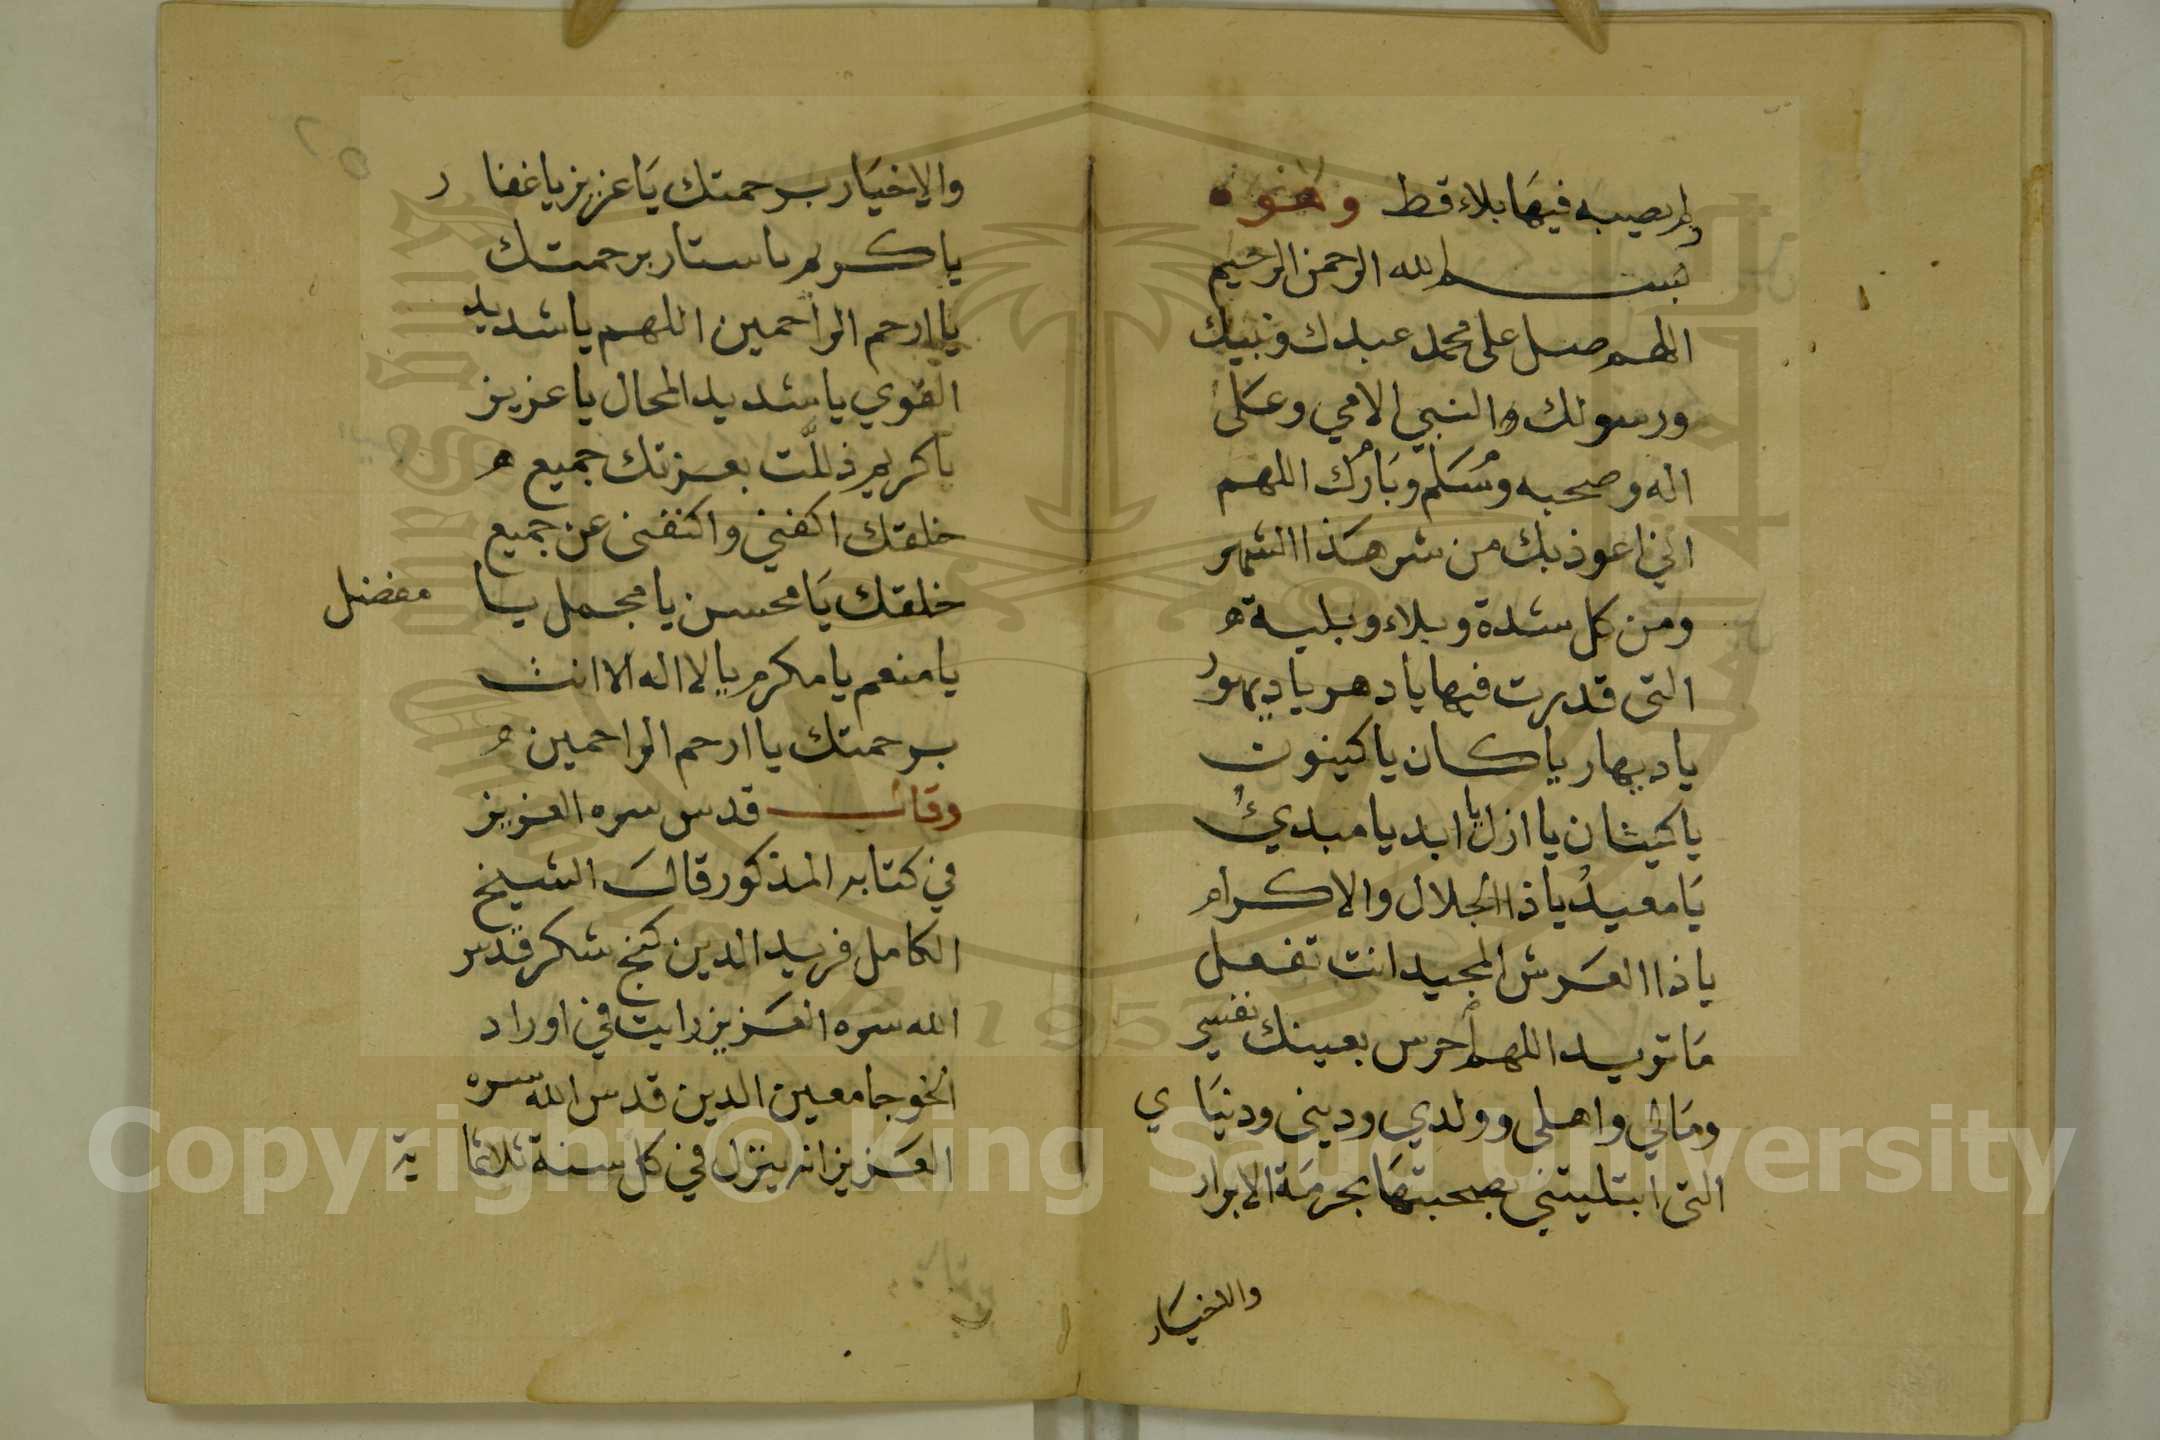 ولم يصيبه فيها بلاء قط وهو هذه
بسم الله الرحمن الرحيم
اللهم صل على محمد عبدك ونبيك
ورسولك والنبي الامي وعلى
اله وصحبه وسلم وبارك اللهم
اني اعوذ بك من شر هذا الشهر
ومن كل شدة وبلاء وبلية ه
التى قدرت فيها يا دهر يا ديهور
يا ديهار يا كان يا كينون
يا كينان يا ازل يا ابد يا مبدئ
يا معيد يا ذا الجلال والاكرام
يا ذا العرش المجيد انت تفعل
ما تريد اللهم احرس بعينك نفسي
ومالي واهلي وولدي وديني ودنياي
التى ابتليتني بصحبتها بحرمة الابرار
والاخيار
والاخيار برحمتك يا عزيز يا غفار
يا كريم يا ستار برحمتك
يا ارحم الراحمين اللهم يا شديد
القوي يا شديد المحال يا عزيز
يا كريم ذللت بعزتك جميع ه
خلقك اكفني واكنفنى عن جميع
خلقك يا محسن يا مجمل يا مفضل
يا منعم يا مكرم يا لا اله الا انت
برحمتك يا ارحم الراحمين
وقال قدس سره العزيز
في كتابه المذكور قال الشيخ
الكامل فريد الدين كنج شكر قدس
الله سره العزيز رايت في اوراد
الخوجا معين الدين قدس الله سره
العزيز انه ينزل في كل سنة ثلاثماية
Copyright © King Saud University
King Saud University
1957